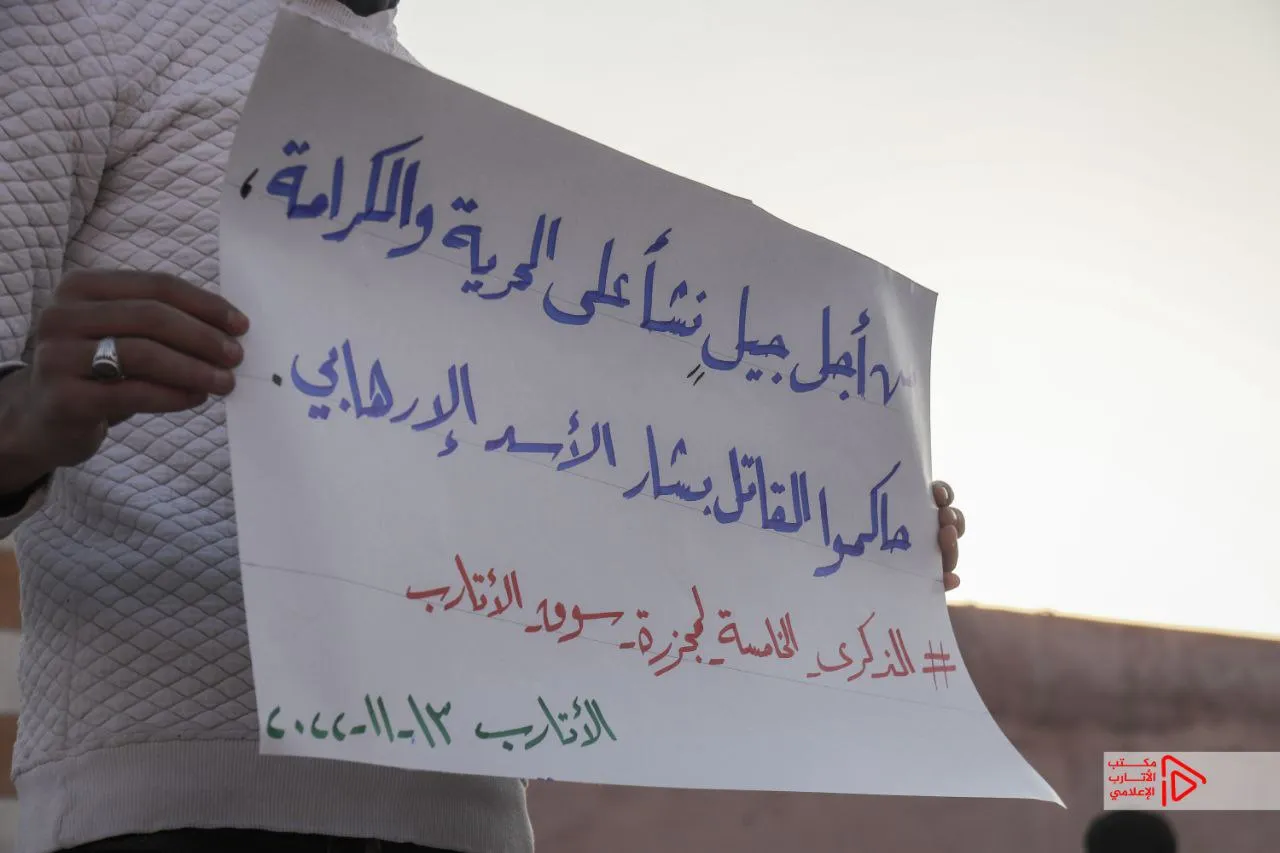 من أجل جيلٍ نشأ على الحرية والكرامة،
حاكموا القاتل بشار الأسد الإرهابي.
#الذكرى_الخامسة_لمجزرة_سوق_الأتارب
الأتارب ١٣-١١-٢٠٢٢
مكتب
الأتارب
الإعلامي